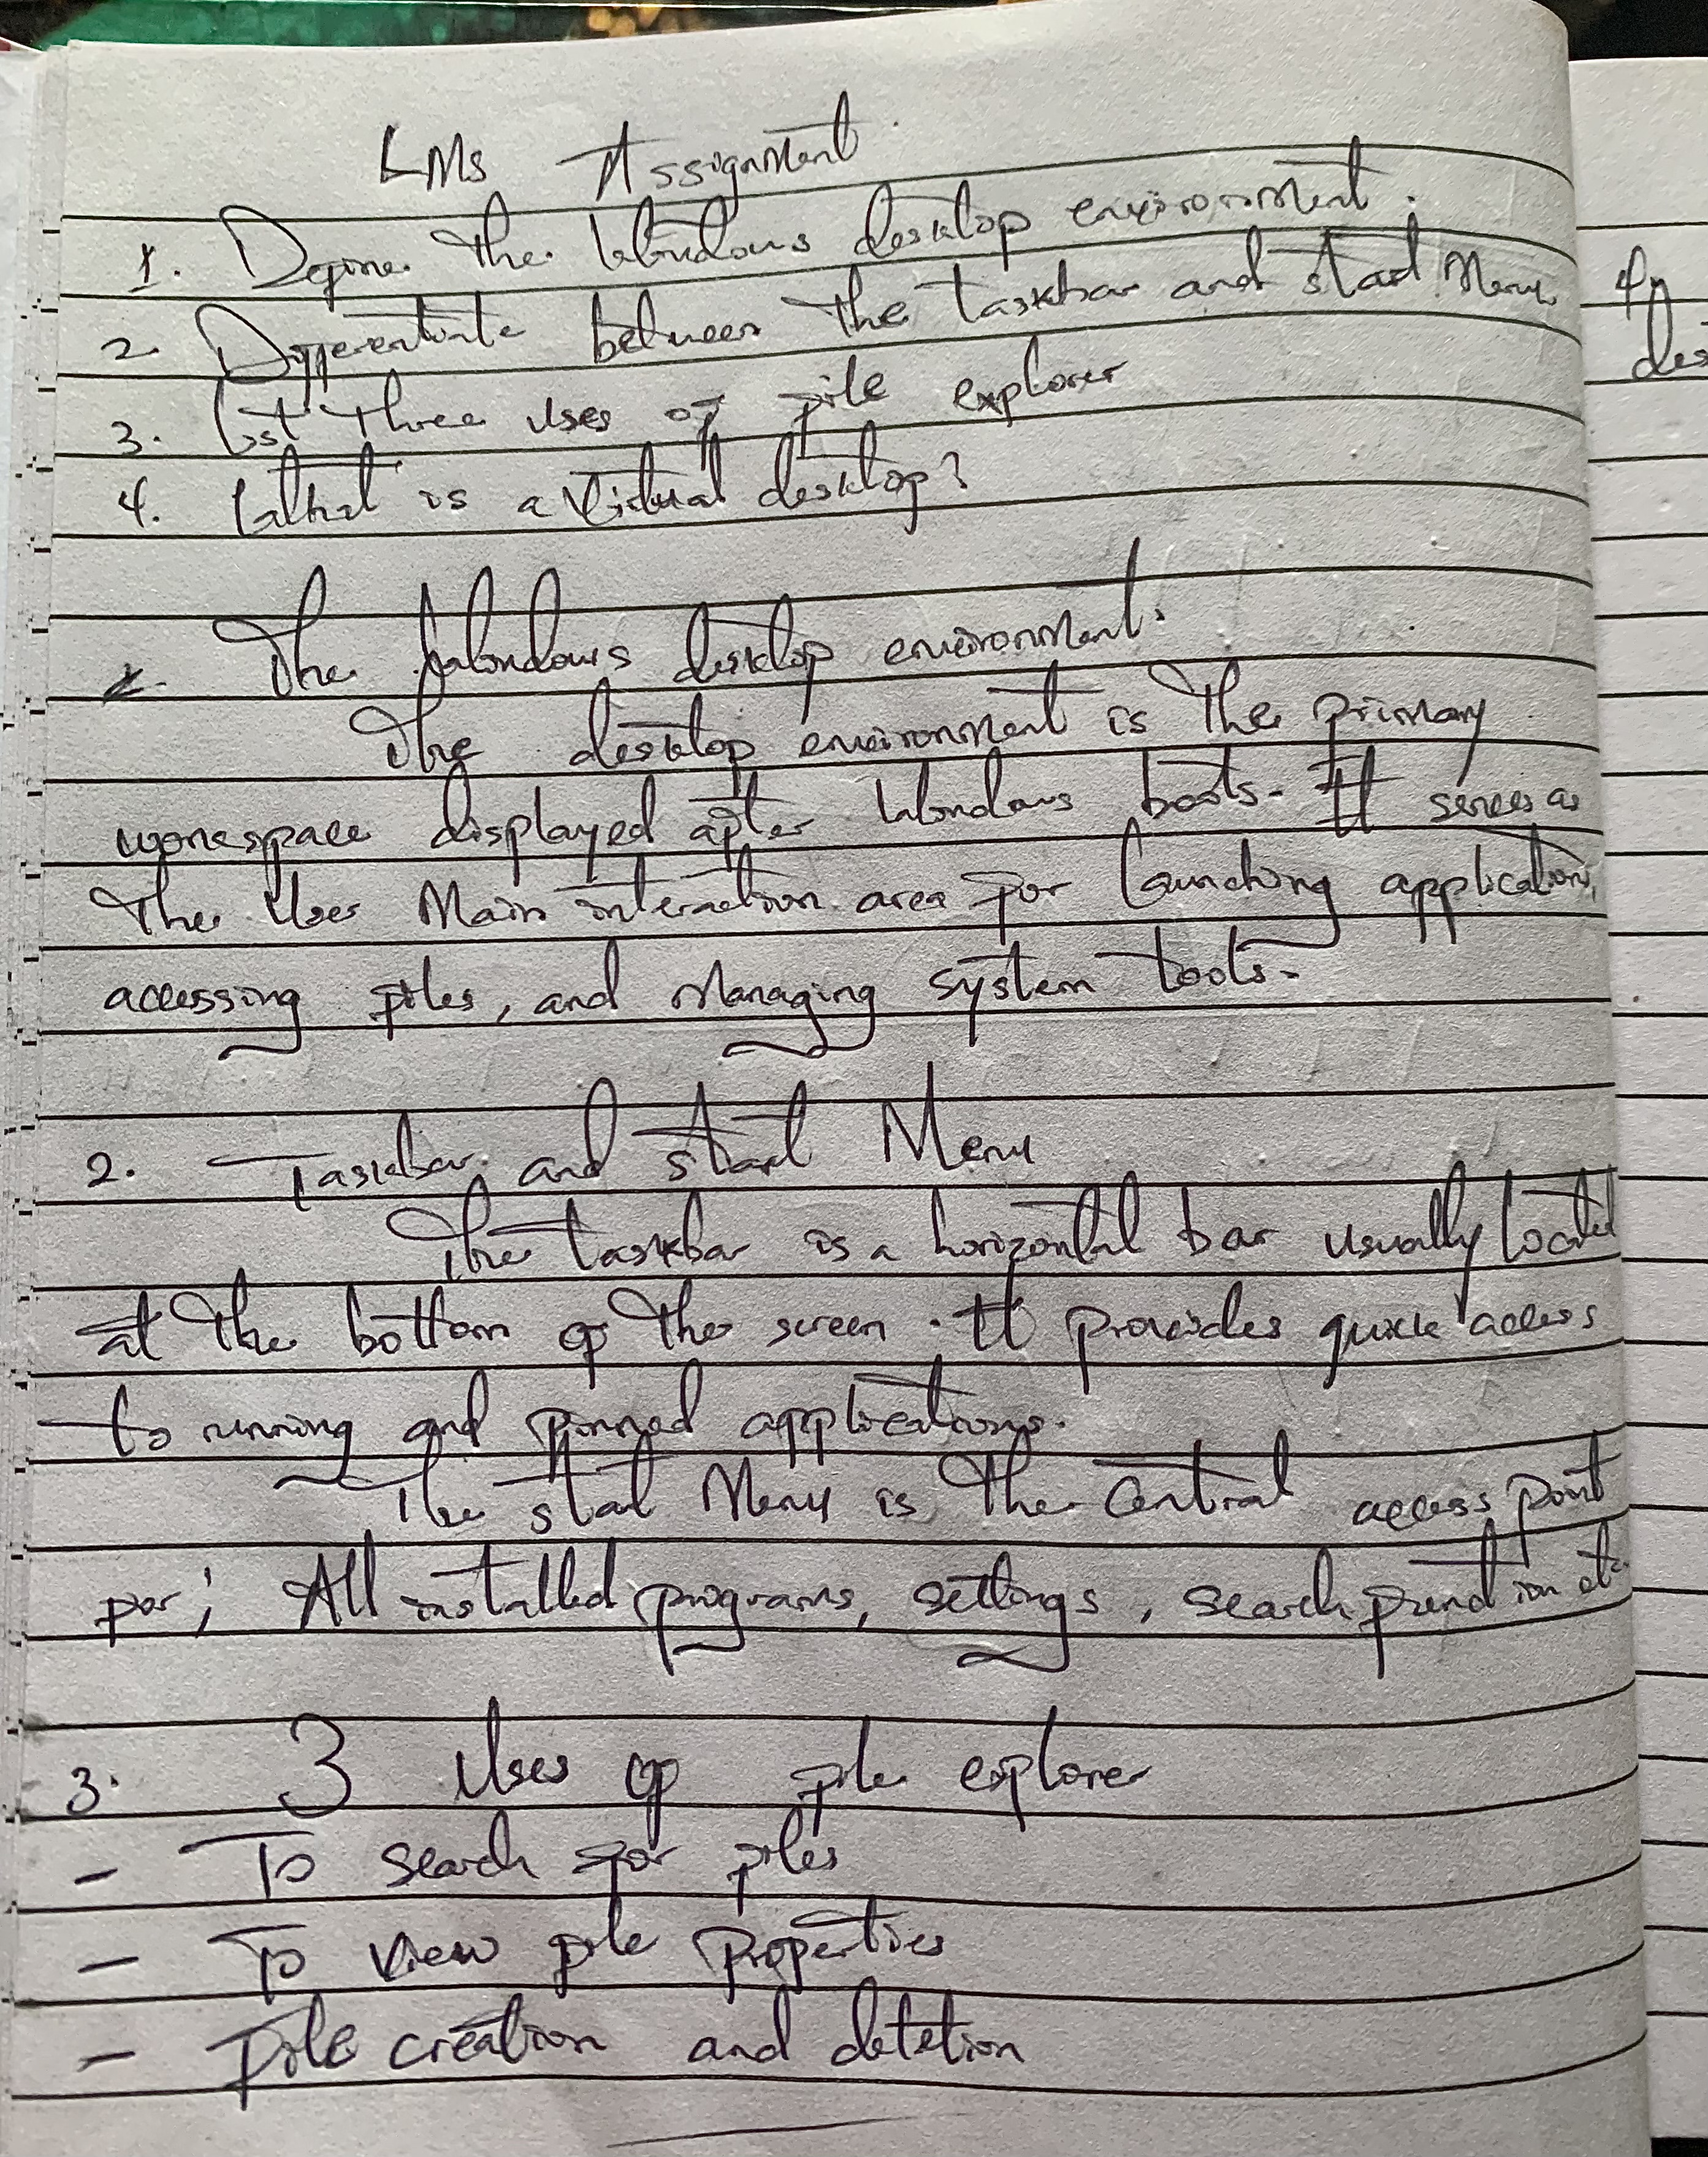 LMS Assignment
1. Define the Windows desktop environment.
2. Differentiate between the taskbar and start Menu
3. List three uses of file explorer
4. What is a virtual desktop?
1. The Windows desktop environment.
The desktop environment is the primary
workspace displayed after Windows boots. It serves as
the User Main interaction area for launching applications,
accessing files, and Managing system tools.
2. Taskbar and start Menu
The taskbar is a horizontal bar usually located
at the bottom of the screen. It provides quick access
to running and pinned applications.
The start Menu is the central access point
for; All installed programs, settings, search function etc
3. 3 Uses of file explorer
- To search for files
- To view file Properties
- File creation and deletion
des